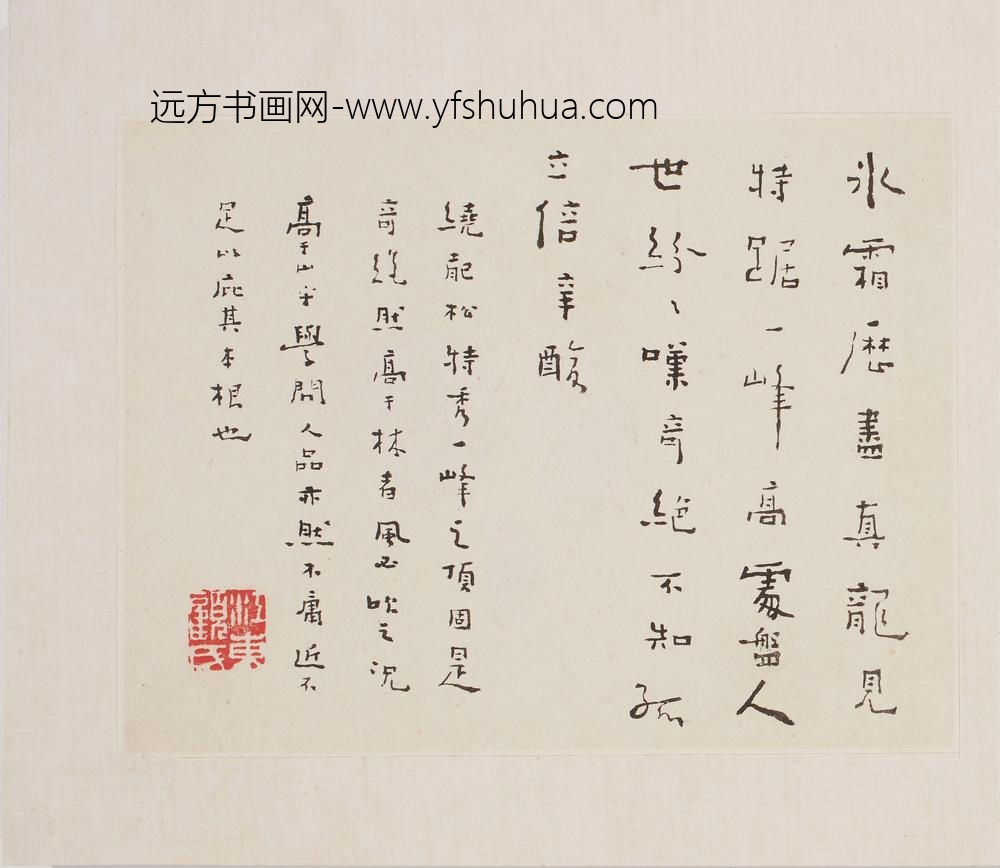 远方书画网-www.yfshuhua.com
冰霜歷盡真龍見
特踞一峰高處盤人
世紛〻嘆奇絕不知孤
立倍辛酸
繞龍松特秀一峰之頂固是
奇絕然高于林者風必吹之況
高于山乎學問人品亦然不庸近不
足以庇其本根也
江東